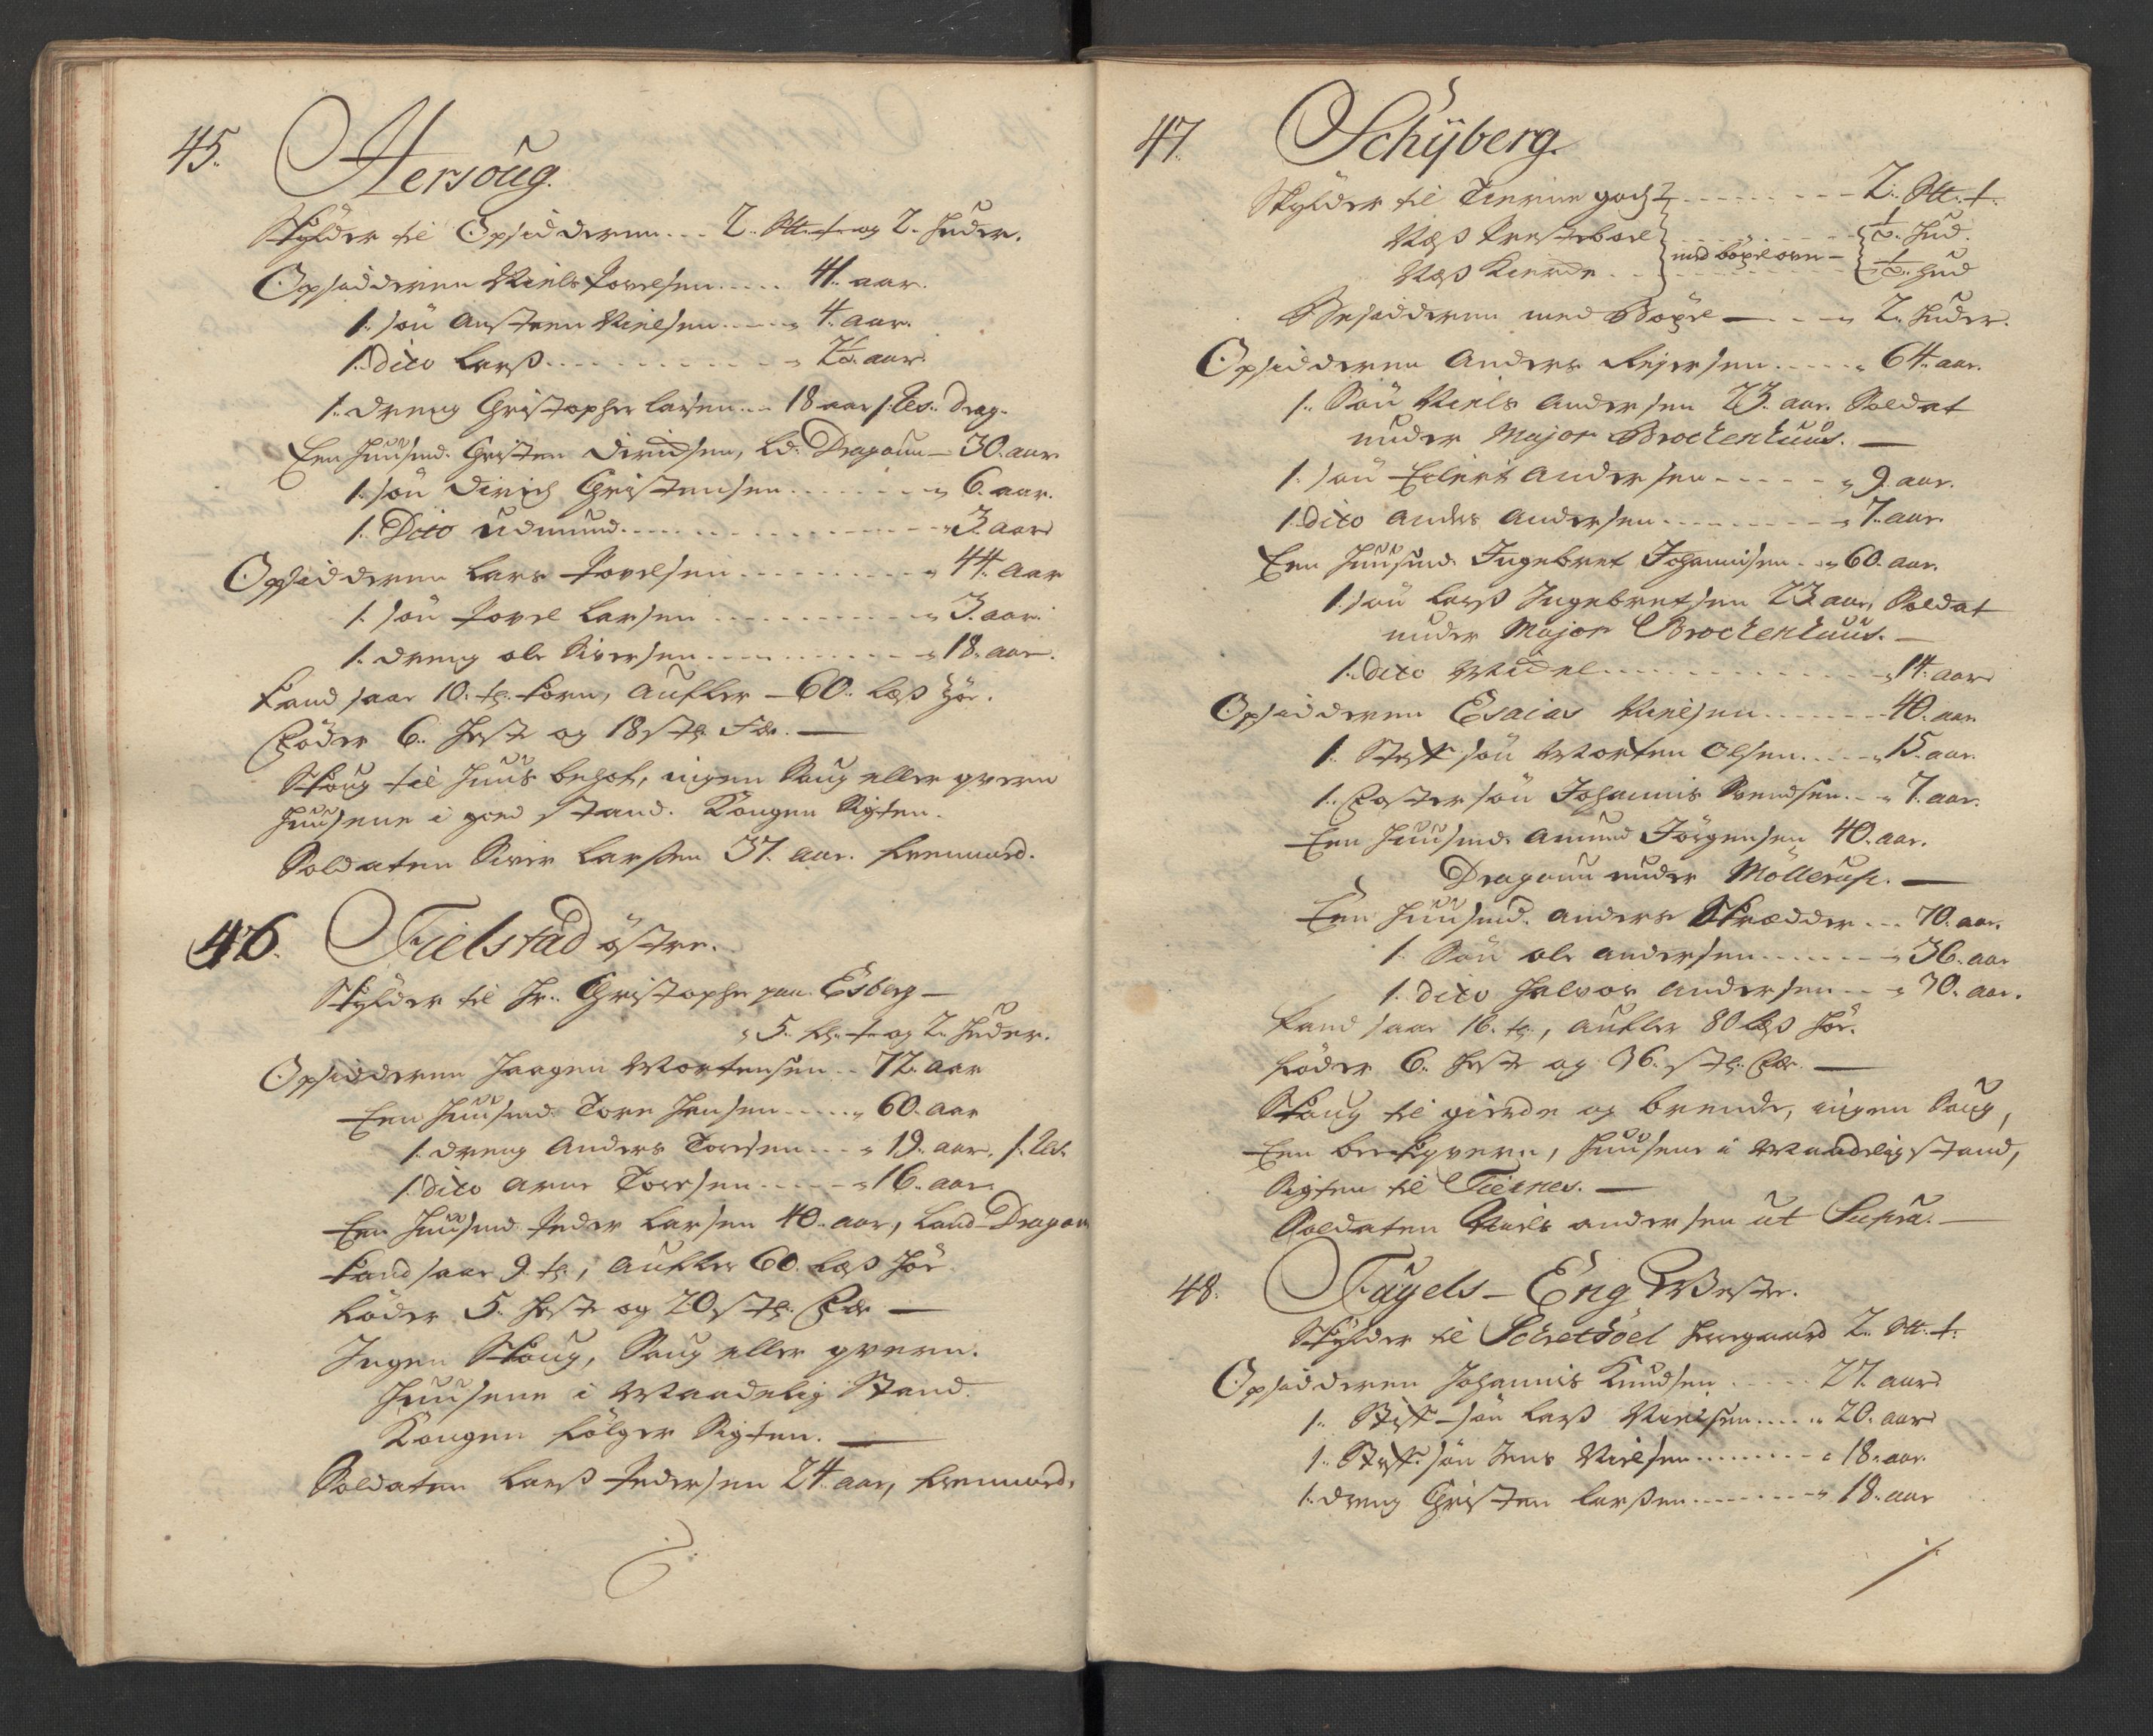 45. Hersoug.
Skylder til Opsidderen... 2. Sk. t. og 2. Huder.
Opsidderen Niels Povelsen..... 41. aar.
1. Søn Austen Nielsen..... 4. aar.
1. dito Larss............ 2½. aar.
1. Dreng Christopher Larsen... 18 aar /: Res. Drag.
Een Huusmd. Christen Dirichsen, Ld. Dragoun - 30. aar
1. søn Dirich Christensen........ 6. aar.
1. Dito Udmund................ 3. aar
Opsidderen Lars Povelsen.......... 44. aar
1. søn Povel Larsen............ 3. aar.
1. Dreng Ole Siversen............ 18. aar.
Kand saae 10. tr. Korn, aufler - 60. Læss Høe.
Føder 6. Heste og 18 stk. Fæ. —
Skoug til Huus behof, ingen Saug eller qvern
Huusene i goed Stand. Kongen Rigten.
Soldaten Siver Larssen 37. aar. Kremmard.
46. Fielstad østre.
Skylder til Hr. Christopher paa Esberg —
5. Sk. t. og 2. Huder.
Opsidderen Haagen Mortensen.. 72. aar
Een Huusmd. Tore Hansen..... 60. aar
1. Dreng Anders Toresen... 19. aar. /: Res.
1. dito Arne Toresen..... 16. aar
Een Huusmd. Peder Larsen 40. aar, Land Dragon
Kand saae 9. tr., aufler 60. Læss Høe.
Føder 5. Heste og 20 stk. Fæ —
Ingen Skoug, Saug eller qvern.
Huusene i Maadelig Stand.
Kongen følger Rigten. —
Soldaten Larss Pedersen 24. aar, Kremmard.
47. Schÿberg.
Skylder til Tiernes gods........ 2. Sk. t.
Næss Presteboel............ ½. Hud.
med böxel over -
Næss Kierche............ ½. Hud
Besidderen med Böxel — ... 2. Huder.
Opsidderen Anders Reÿersen..... 64. aar.
1. Søn Niels Andersen 23. aar. Soldat
under Major Brockenhuus. —
1. søn Eilert Andersen..... 9. aar.
1. dito Anders Andersen........ 7. aar
Een Huusmd. Ingebret Johannisen.. 60. aar.
1. søn Larss Ingebretsen 23 aar, Soldat
under Major Brockenhuus. —
1. dito Mickel............ 14. aar
Opsidderen Esaias Nielsen....... 40. aar
1. Stefsøn Morten Olsen..... 15. aar
1. Fostersøn Johannis Svendsen.. 7. aar.
Een Huusmd. Amund Jörgensen 40. aar.
Dragoun under Möllerup. —
Een Huusmd. Anders Skrædder... 70. aar.
1. Søn Ole Andersen....... 36. aar
1. dito Halvor Andersen... 30. aar.
Kand saae 16. tr., aufler 80 læss Høe.
Föder 6. Heste og 36. stk. Fæ. —
Skoug til gierde og brende, ingen Saug,
Een beckqvern, Huusene i Maadelig stand,
Rigten til Tiernes. —
Soldaten Niels Andersen ut Supra. —
48. Fugels-Eng Westre.
Skylder til Schretsöel Herregaard 2. Sk. t.
Opsidderen Johannis Knudsen..... 27. aar
1. Stiffsøn Larss Nielsen..... 20. aar
1. Stiffsøn Jens Nielsen........ 18. aar.
1. Dreng Christen Larssen........ 18. aar